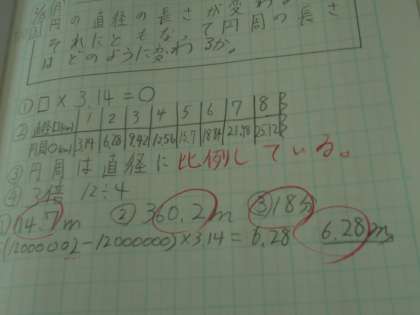 円の直径の長さが変わ
それにともなって円周の長さ
はどのように変わるか。
①□×3.14=○
② 直径□(cm) 1 2 3 4 5 6 7 8
円周○(cm) 3.14 6.28 9.42 12.56 15.7 18.84 21.98 25.12
③円周は直径に比例している。
④3倍 12÷4
① 14.7m ② 360.2m ③ 18
(12000002-12000000)×3.14=6.28 6.28m